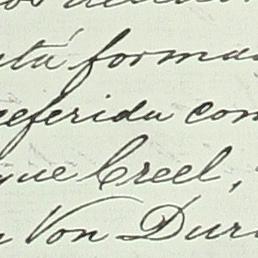 está forma
referida com
que Creel,
Von Dur